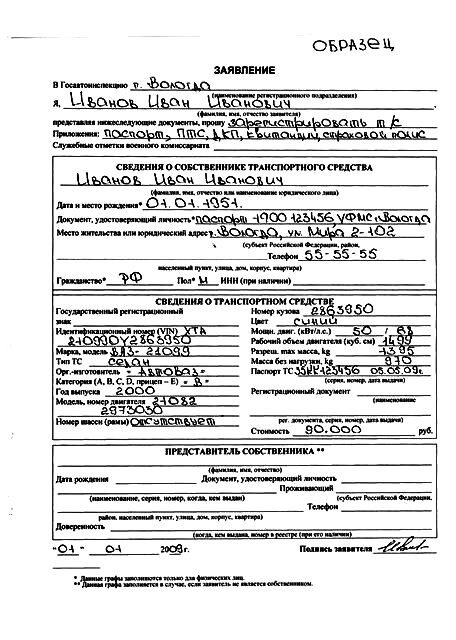 ОБРАЗЕЦ
ЗАЯВЛЕНИЕ
В Госавтоинспекцию г. Вологда
(наименование регистрационного подразделения)
Я, Иванов Иван Иванович
(фамилия, имя, отчество заявителя)
представляя нижеследующие документы, прошу зарегистрировать т/с
Приложения: паспорт, ПТС, ДКП, квитанции, страховой полис
Служебные отметки военного комиссариата
СВЕДЕНИЯ О СОБСТВЕННИКЕ ТРАНСПОРТНОГО СРЕДСТВА
Иванов Иван Иванович
(фамилия, имя, отчество или наименование юридического лица)
Дата и место рождения* 01.01.1951.
Документ, удостоверяющий личность* паспорт 1900 123456 УФМС г. Вологда
Место жительства или юридический адрес г. Вологда, ул. Мира 2-102
(субъект Российской Федерации, район,
Телефон 55-55-55
населенный пункт, улица, дом, корпус, квартира)
Гражданство* РФ Пол* М ИНН (при наличии)
СВЕДЕНИЯ О ТРАНСПОРТНОМ СРЕДСТВЕ
Государственный регистрационный знак
Идентификационный номер (VIN) ХТА
210990Y2863950
Марка, модель ВАЗ-21099
Тип ТС седан
Орг.-изготовитель «АвтоВАЗ»
Категория (А, В, С, D, прицеп – Е) «В»
Год выпуска 2000
Модель, номер двигателя 21083
2973030
Номер шасси (рамы) отсутствует
Номер кузова 2863950
Цвет синий
Мощн. двиг. (кВт/л.с.) 50 / 68
Рабочий объем двигателя (куб. см) 1499
Разреш. max масса, kg 1395
Масса без нагрузки, kg 970
Паспорт ТС 123456 05.05.09г.
(серия, номер, дата выдачи)
Регистрационный документ
(наименование
рег. документа, серия, номер, дата выдачи)
Стоимость 90.000 руб.
ПРЕДСТАВИТЕЛЬ СОБСТВЕННИКА **
(фамилия, имя, отчество)
Дата рождения Документ, удостоверяющий личность
Проживающий
(наименование, серия, номер, когда, кем выдан) (субъект Российской Федерации,
Телефон
район, населенный пункт, улица, дом, корпус, квартира)
Доверенность
(когда, кем выдана, номер в реестре (при его наличии)
"01" 01 2009г. Подпись заявителя
* Данные графы заполняются только для физических лиц.
** Данная графа заполняется в случае, если заявитель не является собственником.